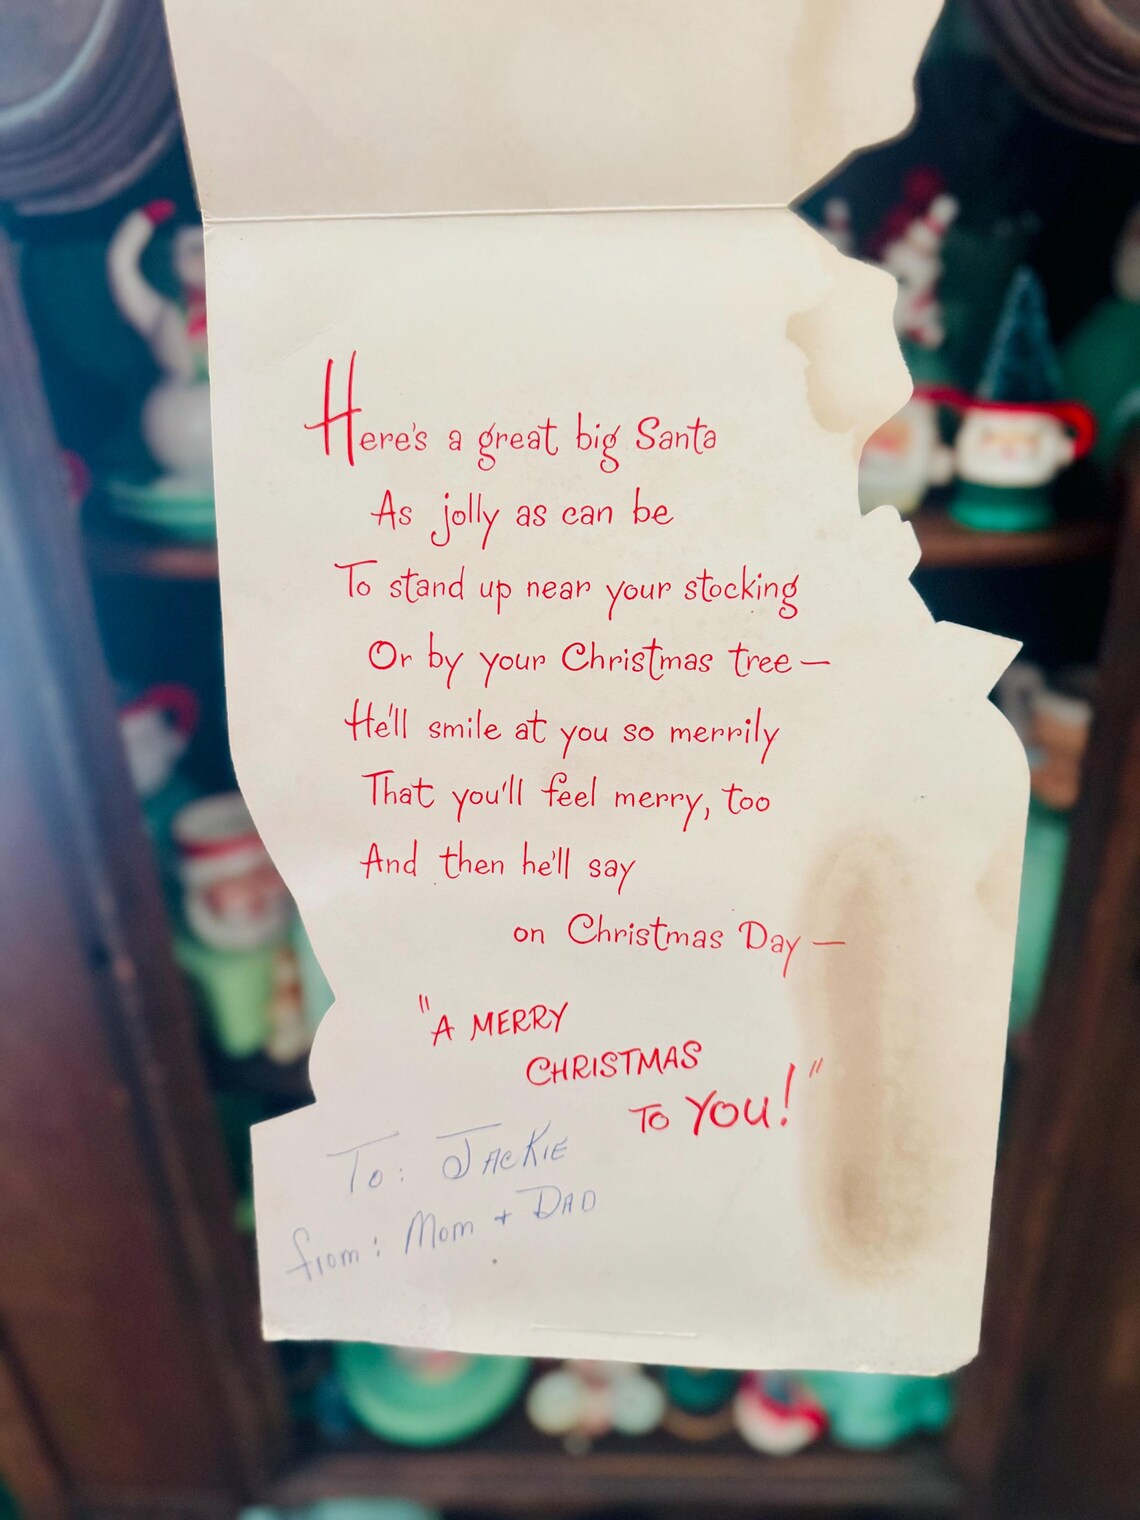 Here's a great big Santa
As jolly as can be
To stand up near your stocking
Or by your Christmas tree—
He'll smile at you so merrily
That you'll feel merry, too
And then he'll say
on Christmas Day—
"A MERRY
CHRISTMAS
TO YOU!"
To: JACKIE
from: Mom + DAD